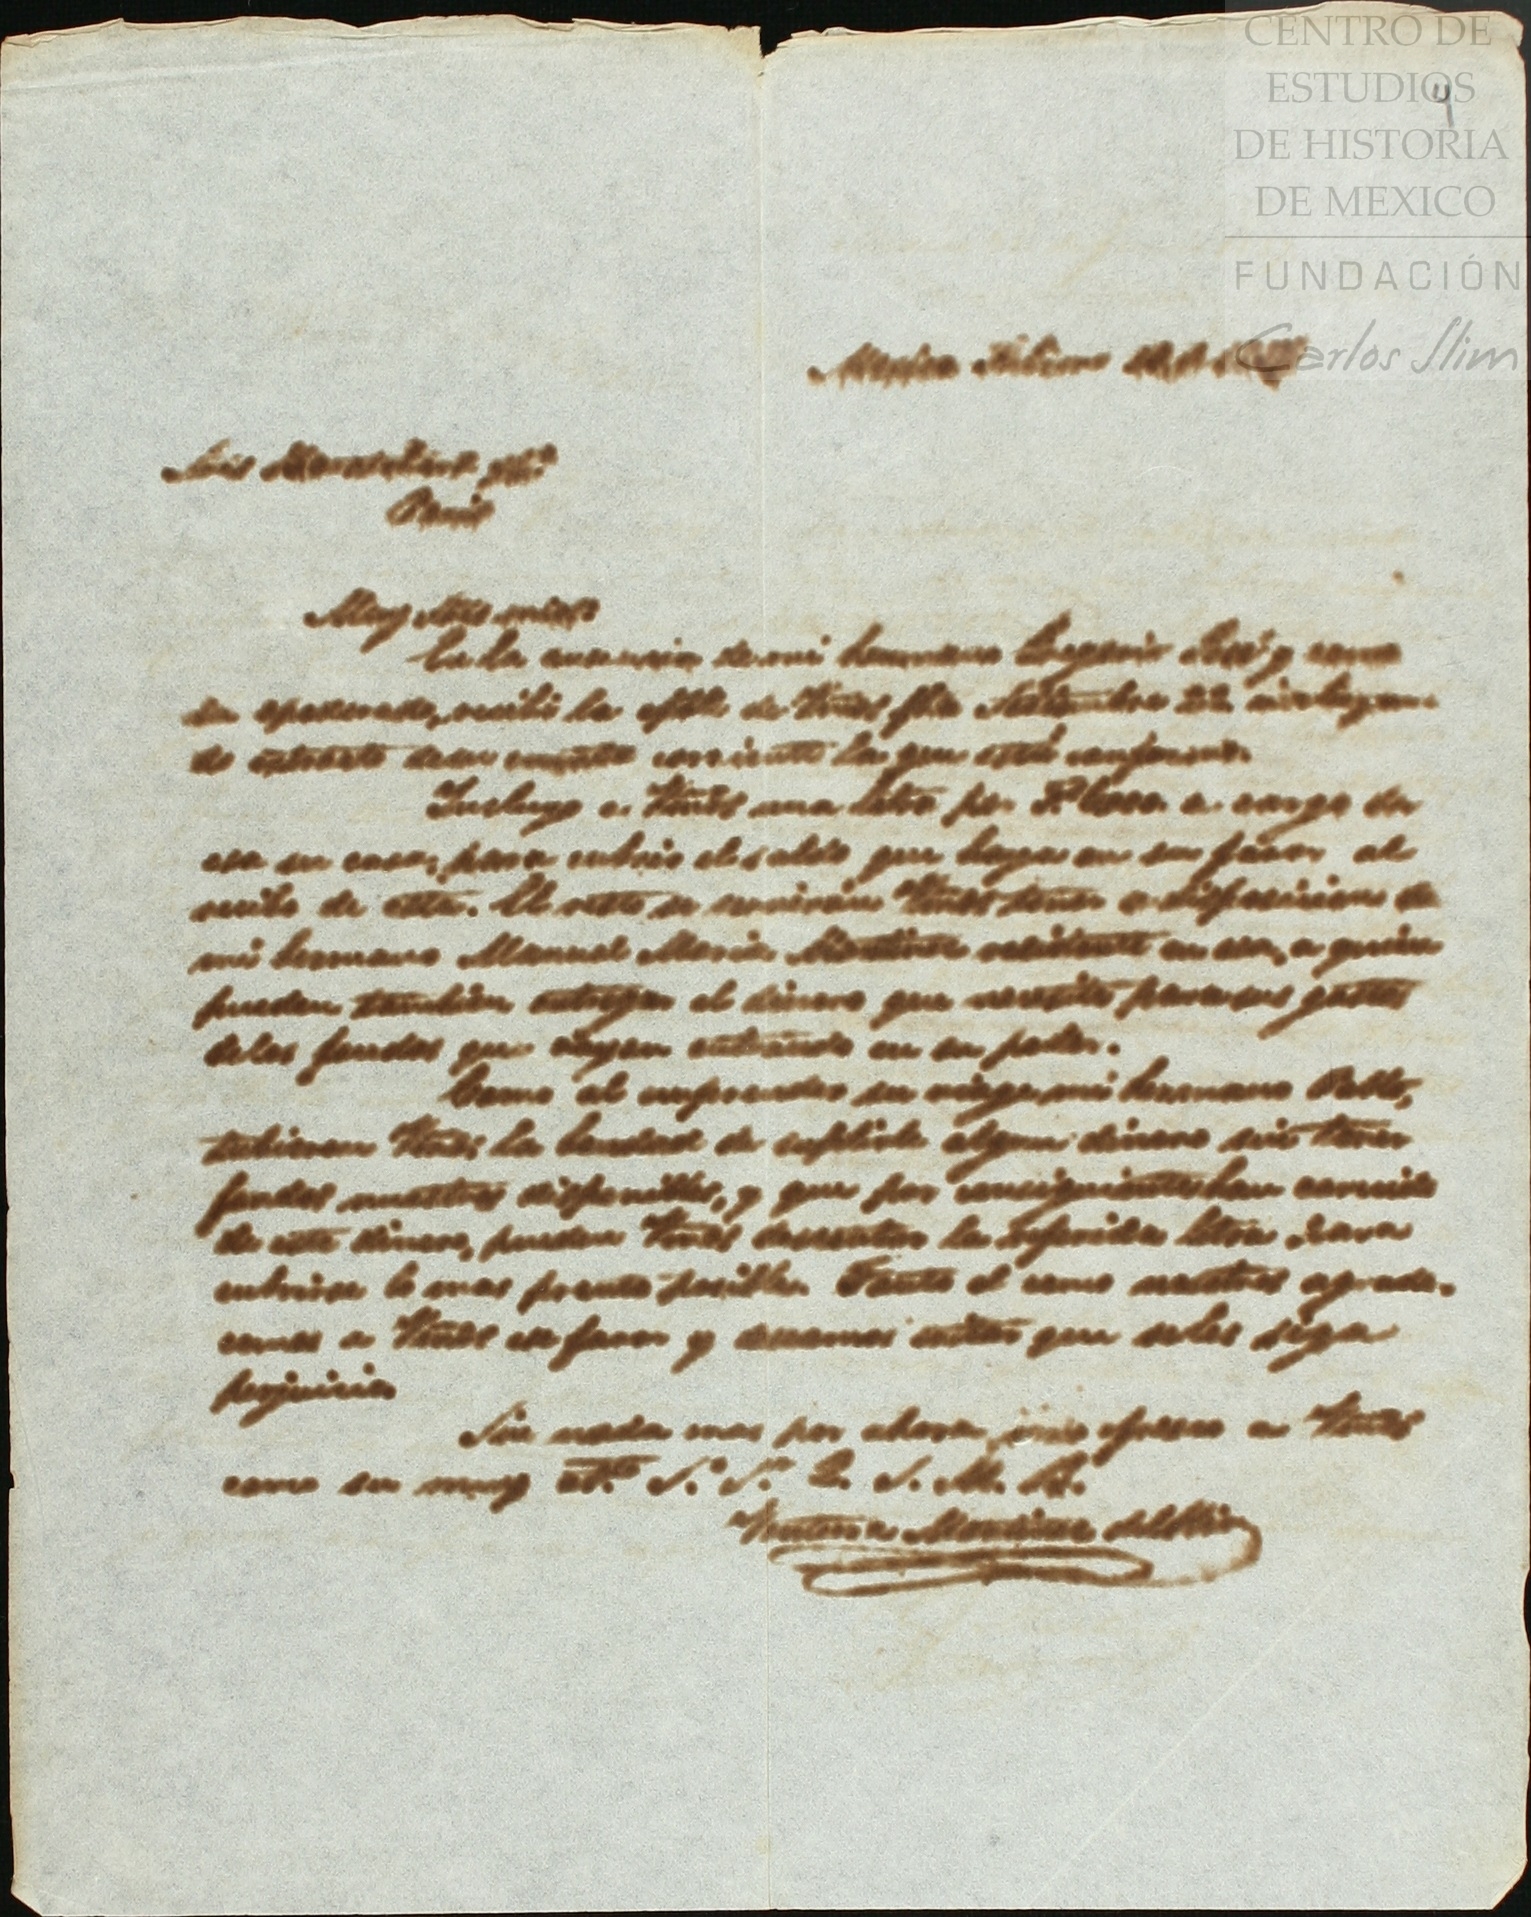 CENTRO DE
ESTUDIOS
DE HISTORIA
DE MEXICO
FUNDACIÓN
Carlos Slim
4
Mexico
Paris
Muy Sres mios:
En la ausencia de mi hermano Gregorio José y como
su apoderado, recibi la de Vmds fha Setiembre 22
do estracto de su cuenta corriente la que está conforme.
Incluyo a Vmds una letra por a cargo de
esa su casa, para cubrir el saldo que haya en su favor al
recibo de esta. El resto se serviran Vmds tener a disposicion de
mi hermano Manuel Maria Martinez residente en esa, a quien
pueden tambien entregar el dinero que necesite para sus gastos
de los fondos que vayan entrando en su poder.
Como al emprender su viage mi hermano Pablo,
tubieron Vmds la bondad de suplirle algun dinero sin tener
fondos nuestros disponibles, y que por consiguiente han carecido
de este dinero, pueden Vmds descontar la referida letra para
cubrirse lo mas pronto posible. Tanto el como nosotros agrade-
cemos a Vmds ese favor y deseamos evitar que se les siga
perjuicio.
Sin nada mas por ahora, me ofresco a Vmds
como su muy at.to S.o S.r Q. S. M. B.
Ventura Martinez del Rio